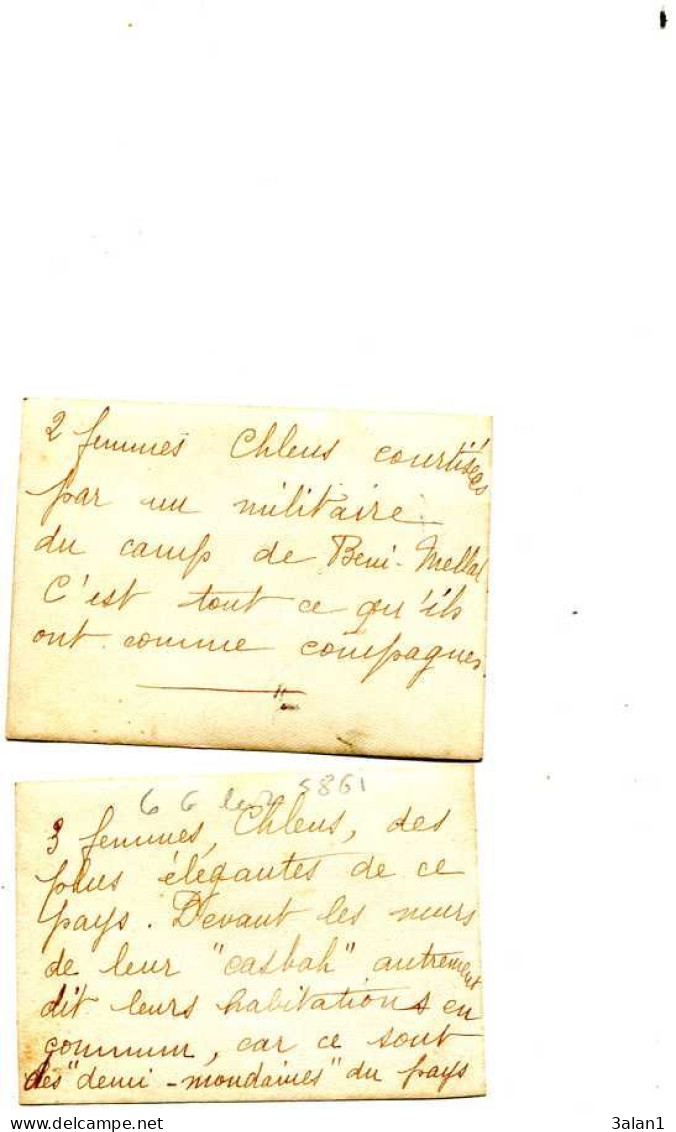 2 femmes Chleus courtisées
par un militaire
du camp de Beni-Mellal
C'est tout ce qu'ils
ont comme compagnes.
6 6 5861
3 femmes, Chleus, des
plus élégantes de ce
pays. Devant les murs
de leur "casbah" autrement
dit leurs habitations en
commun, car ce sont
des "demi-mondaines" du pays
3alan1